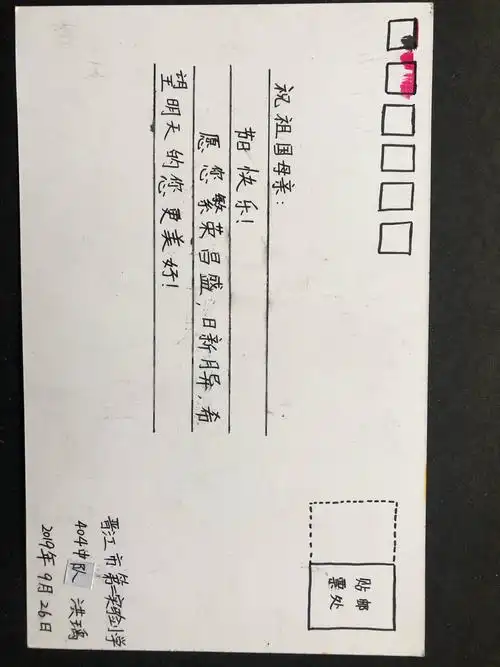 祝祖国母亲：
节日快乐！
愿您繁荣昌盛，日新月异，希
望明天的您更美好！
贴邮
票处
晋江市第二实验小学
404中队 洪瑀
2019年9月26日